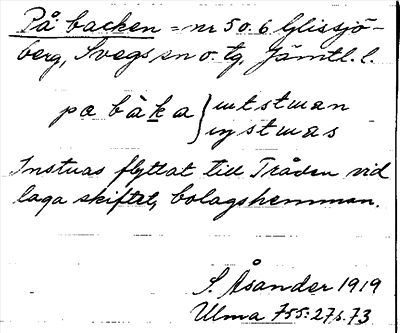 På backen = nr 5 o. 6 Glissjö-
berg, Svegs sn o. tg. Jämtl. l.
pɑ bàka } utstuan
nystuas
Instuas flyttat till Tråden vid
laga skiftet, bolagshemman.
S. Åsander 1919
Ulma 755:27 s. 73